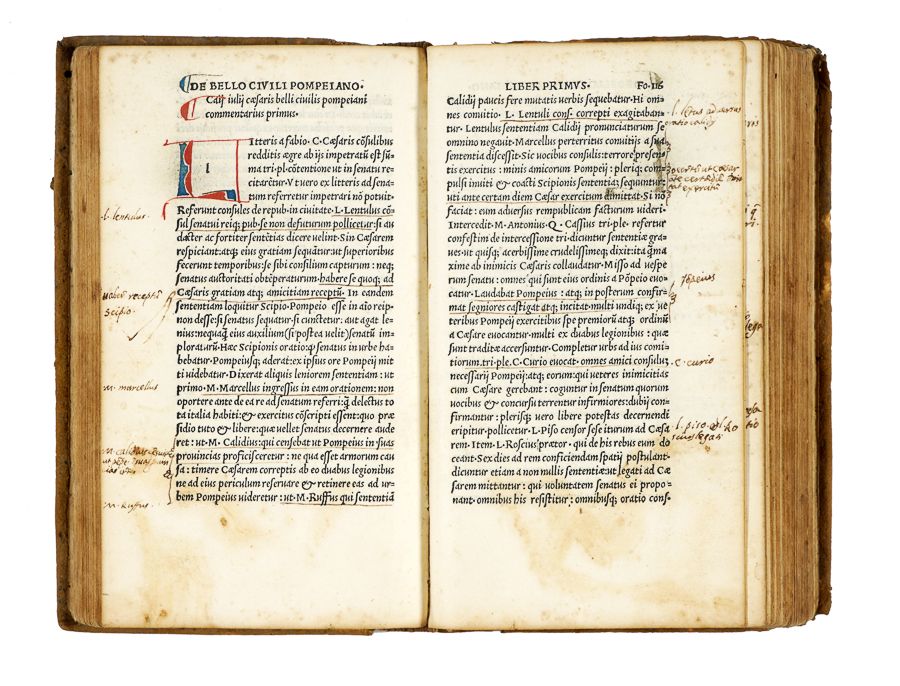 DE BELLO CIVILI POMPEIANO·
Caij iulij cæsaris belli ciuilis pompeiani
commentarius primus.
l
Itteris a fabio · C · Cæsaris cõsulibus
redditis ægre ab ijs impetratũ est sũ-
ma tri·pl·cõtentione ut in senatu re
citarẽtur · Vt uero ex litteris ad sena-
tum referretur impetrari nõ potuit·
Referunt consules de repub·in ciuitate · L · Lentulus cõ-
sul senatui reiq; pub·se non defuturum pollicetur:si au
dacter ac fortiter sentẽtias dicere velint · Sin Cæsarem
respiciant:atq; eius gratiam sequãtur:ut superioribus
fecerunt temporibus:se sibi consilium capturum : neq;
senatus auctoritati obtẽperaturum:habere se quoq; ad
Cæsaris gratiam atq; amicitiam receptũ · In eandem
sententiam loquitur Scipio·Pompeio esse in aĩo reip·
non desse:si senatus sequatur·si cunctetur: aut agat le-
nius:nequaq̃ eius auxilium(si postea velit)senatũ im-
ploraturũ·Hæc Scipionis oratio:q̃ senatus in urbe ha-
bebatur·Pompeiusq; aderat:ex ipsius ore Pompeij mit
ti videbatur · Dixerat aliquis leniorem sententiam : ut
primo · M · Marcellus ingressus in eam orationem: non
oportere ante de ea re ad senatum referri:q̃ delectus to
ta italia habiti:& exercitus cõscripti essent:quo præ
sidio tuto & libere:quæ vellet senatus decernere aude
ret : ut · M · Calidius:qui censebat ut Pompeius in suas
prouincias proficisceretur : ne qua esset armorum cau
sa : timere Cæsarem correptis ab eo duabus legionibus
ne ad eius periculum reseruare & retinere eas ad ur-
bem Pompeius videretur : ut · M · Ruffus qui sententiã
·l· lentulus·
Scipio·
M· marcellus
M· Ruffus·
LIBER PRIMVS·
Fo·116
Calidij paucis fere mutatis uerbis sequebatur·Hi om
nes conuitio · L · Lentuli cons · correpti exagitabant
tur · Lentulus sententiam Calidij pronunciaturum se
omnino negauit · Marcellus perterritus conuitijs a sua
sententia discessit·Sic uocibus consulis:terrore præsen-
tis exercitus : minis amicorum Pompeij : pleriq; com-
pulsi inuiti & coacti Scipionis sententiã; sequuntur:
uti ante certam diem Cæsar exercitum dimittat · Si nõ
faciat : eum aduersus rempublicam facturum videri·
Intercedit · M · Antonius · Q · Cassius tri·ple · refertur
confestim de intercessione tri·dicuntur sententiæ gra-
ues·ut quisq; acerbissime crudelissimeq; dixit:ita q̃ma
xime ab inimicis Cæsaris collaudatur · Misso ad uespe
rum senatu : omnes qui sunt eius ordinis a Põpeio euo
catur · Laudabat Pompeius : atq; in posterum confir-
mat segniores castigat atq; incitat·multi undiq; ex ue
teribus Pompeij exercitibus spe premiorũ atq; ordinũ
a Cæsare euocantur·multi ex duabus legionibus : quæ
sunt traditæ accersuntur · Completur urbs ad ius comi
tiorum·tri·ple·C·Curio euocat·omnes amici consulis;
necessarij Pompeij:atq; eorum:qui ueteres inimicitias
cum Cæsare gerebant : coguntur in senatum quorum
uocibus & concursu terrentur infirmiores:dubij con-
firmantur : plerisq; vero libere potestas decernendi
eripitur·pollicetur·L·Piso censor sese iturum ad Cæsa
rem·Item·L·Roscius prætor · qui de his rebus eum do
ceant·Sex dies ad rem conficiendam spatij postulant·
dicuntur etiam a non nullis sententiæ:ut legati ad Cæ
sarem mittantur : qui voluntatem senatus ei propo-
nant·omnibus his resistitur : omnibusq; oratio cons·
põpeius
C· curio